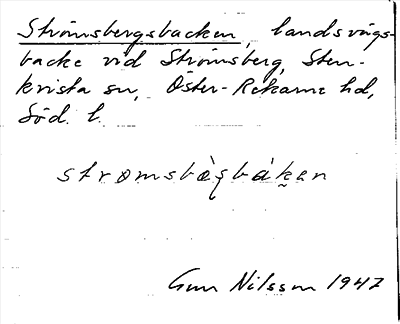 Strömsbergsbacken, landsvägs-
backe vid Strömsberg, Sten-
kvista sn, Öster-Rekarne hd,
Söd. l.
strømsbæ̀gbákən
Gun Nilsson 1947